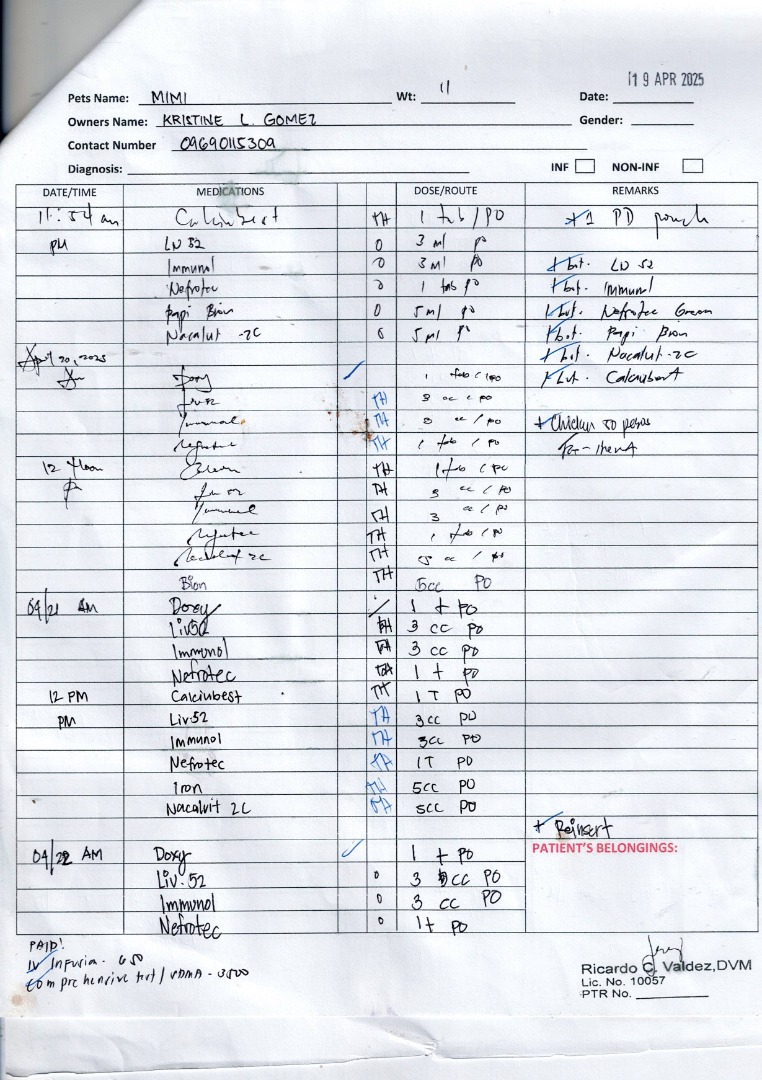 19 APR 2025
Pets Name: MIMI Wt: 11 Date:
Owners Name: KRISTINE L. GOMEZ Gender:
Contact Number 09690115309
Diagnosis: INF NON-INF
DATE/TIME MEDICATIONS DOSE/ROUTE REMARKS
11:54 am Calciubest TH 1 tab/PO +1 PD pouch
PM LIV 52 0 3 ml po
Immunol 0 3 ml po + bot. LIV 52
Nefrotec 0 1 tab po + bot. Immunol
Papi Bion 0 5 ml po + bot. Nefrotec Green
Nacalvit -2C 0 5 ml po + bot. Papi Bion
April 20, 2025 + bot. Nacalvit-2C
Am Doxy 1 tab / po + bot. Calciubest
Liv 52 TH 3 cc / po
Immunol TH 3 cc / po + Chicken 50 pesos
Nefrotec TH 1 tab / po
12 Noon TH 1 tab / po
p Liv 52 TH 3 cc / po
Immunol TH 3 cc / po
Nefrotec TH 1 tab / po
Nacalvit 2C TH 5 cc / po
Bion TH 5cc PO
04/21 AM Doxy 1 t PO
Liv52 TH 3 cc PO
Immunol TH 3 cc PO
Nefrotec TH 1 t PO
12 PM Calciubest TH 1 T PO
PM Liv.52 TH 3cc PO
Immunol TH 3cc PO
Nefrotec TH 1T PO
Iron TH 5cc PO
Nacalvit 2C TH 5cc PO
+ Reinsert
04/22 AM Doxy 1 t PO PATIENT'S BELONGINGS:
Liv.52 0 3 cc PO
Immunol 0 3 cc PO
Nefrotec 0 1t PO
PAID!
IV Infusion - 650
Comprehensive test / - 3500
Ricardo C. Valdez, DVM
Lic. No. 10057
PTR No.